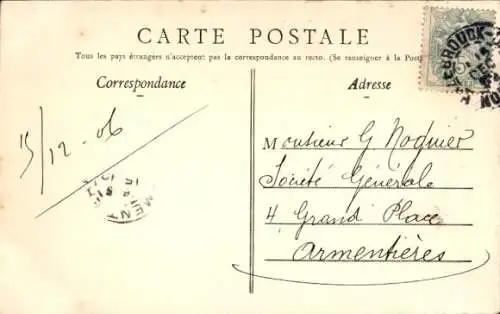 CARTE POSTALE
Tous les pays étrangers n'acceptent pas la correspondance au recto. (Se renseigner à la Post
Correspondance
Adresse
15/12-06
Monsieur G Noquier
Société Générale
4 Grand Place
Armentières